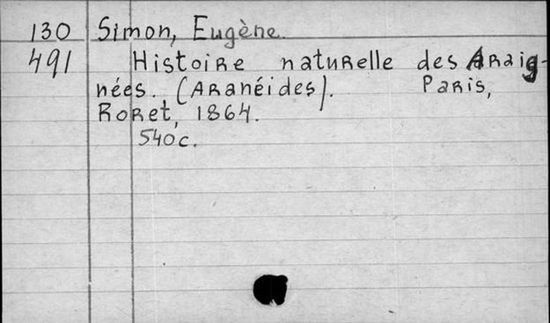 130 Simon, Eugène.
491 Histoire naturelle des Araig-
nées. (Aranéides). Paris,
Roret, 1864.
540c.